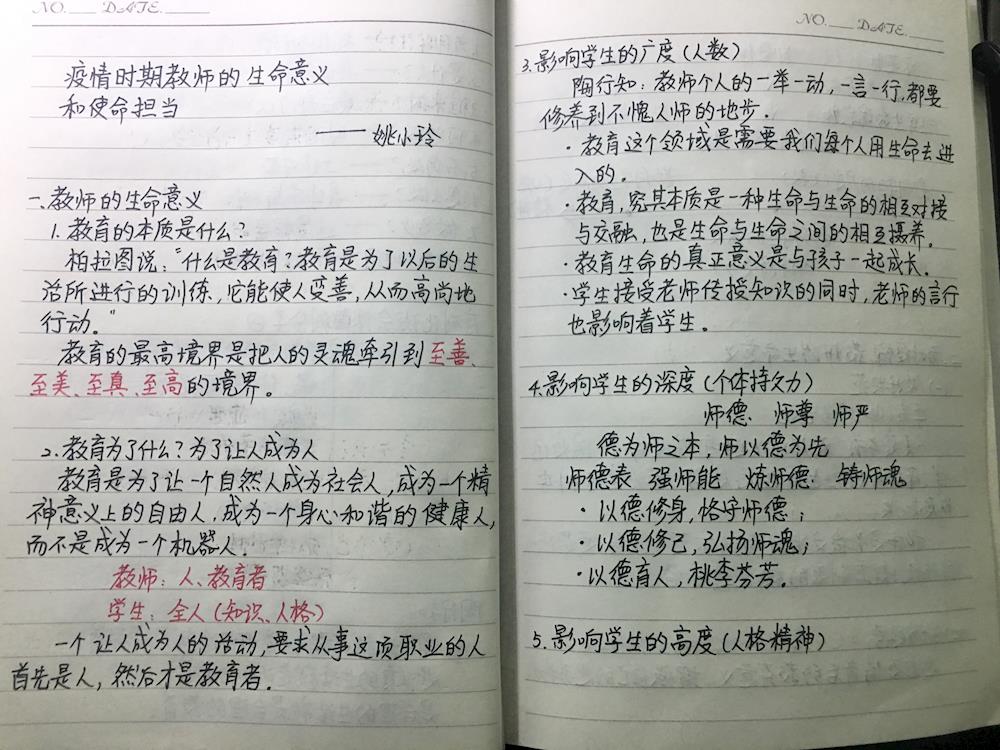 NO.____ DATE.______
疫情时期教师的生命意义
和使命担当
——姚小玲
一、教师的生命意义
1. 教育的本质是什么?
柏拉图说:“什么是教育?教育是为了以后的生
活所进行的训练,它能使人变善,从而高尚地
行动。”
教育的最高境界是把人的灵魂牵引到至善、
至美、至真、至高的境界。
2. 教育为了什么?为了让人成为人
教育是为了让一个自然人成为社会人,成为一个精
神意义上的自由人,成为一个身心和谐的健康人,
而不是成为一个机器人.
教师:人、教育者
学生:全人(知识、人格)
一个让人成为人的活动,要求从事这项职业的人
首先是人,然后才是教育者.
NO.____ DATE.______
3.影响学生的广度(人数)
陶行知:教师个人的一举一动,一言一行,都要
修养到不愧人师的地步.
·教育这个领域是需要我们每个人用生命去进
入的.
·教育,究其本质是一种生命与生命的相互对接
与交融,也是生命与生命之间的相互摄养.
·教育生命的真正意义是与孩子一起成长.
·学生接受老师传授知识的同时,老师的言行
也影响着学生.
4.影响学生的深度(个体持久力)
师德、师尊 师严
德为师之本,师以德为先
师德表 强师能 炼师德 铸师魂
·以德修身,恪守师德;
·以德修己,弘扬师魂;
·以德育人,桃李芬芳.
5.影响学生的高度(人格精神)